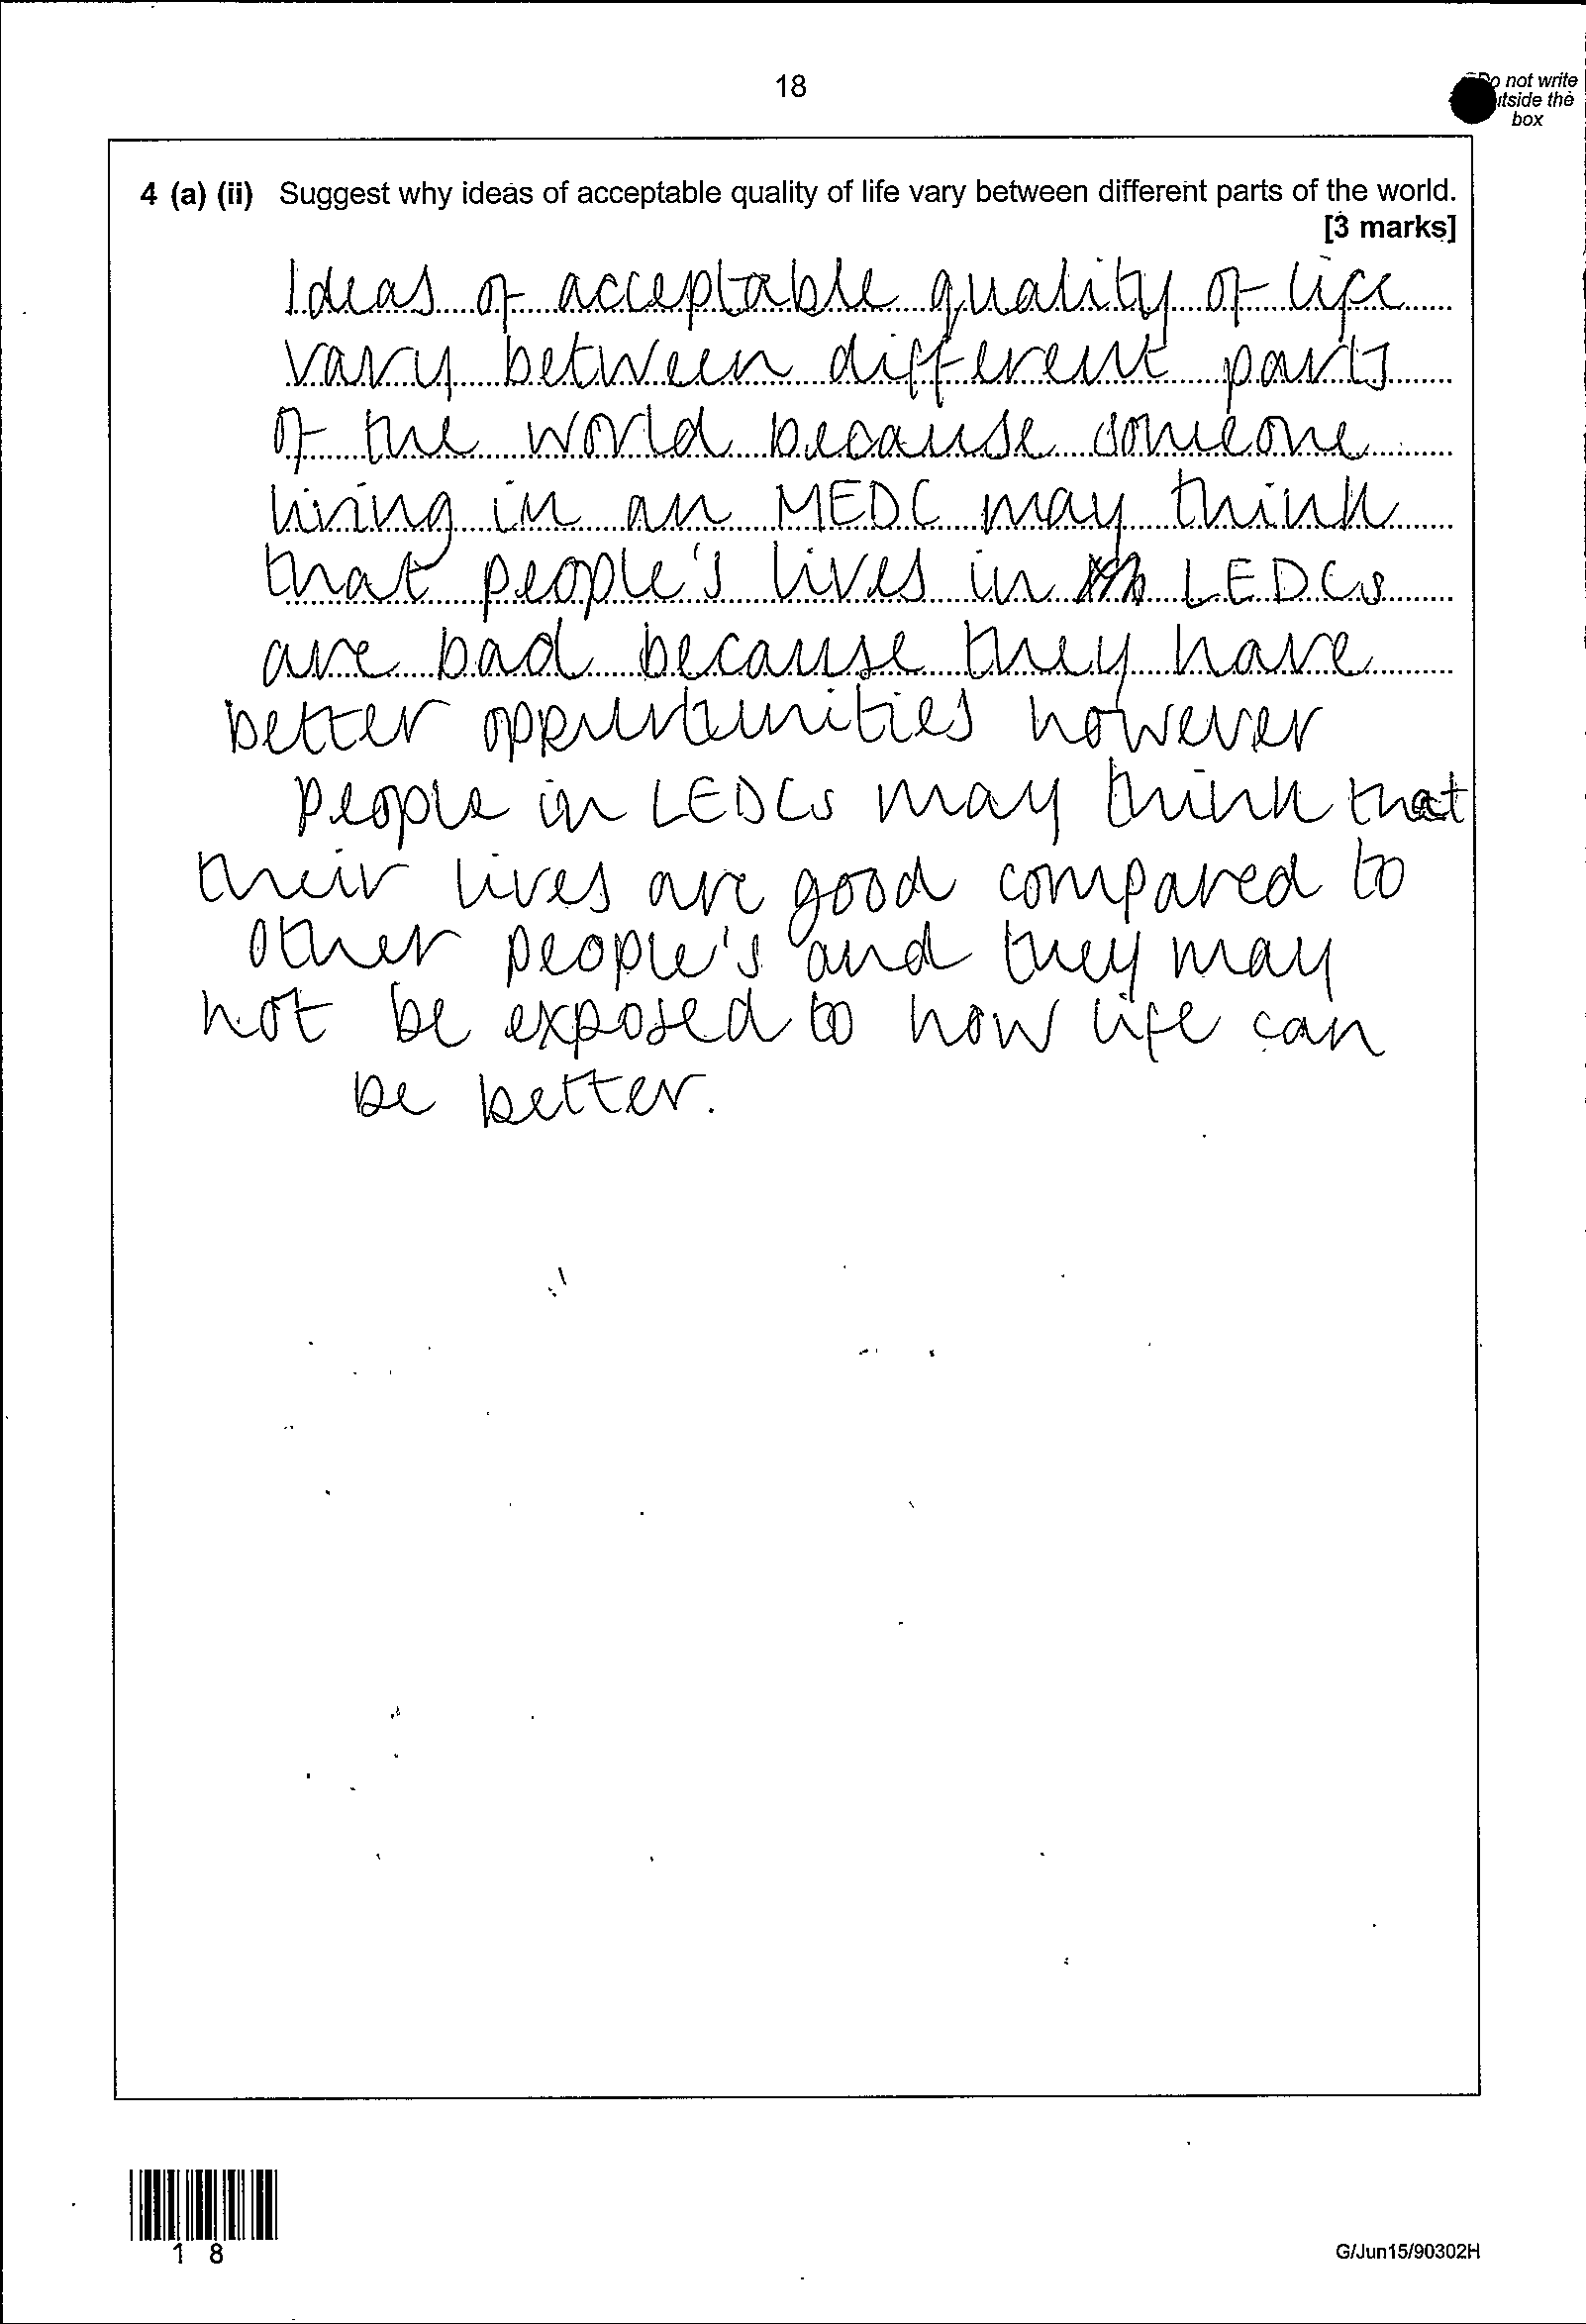 18
Do not write
outside the
box
4 (a) (ii) Suggest why ideas of acceptable quality of life vary between different parts of the world.
[3 marks]
Ideas of acceptable quality of life
vary between different parts
of the world because someone
living in an MEDC may think
that people's lives in LEDCs
are bad because they have
better oppurtunities however
people in LEDCs may think that
their lives are good compared to
other people's and they may
not be exposed to how life can
be better.
1 8
G/Jun15/90302H